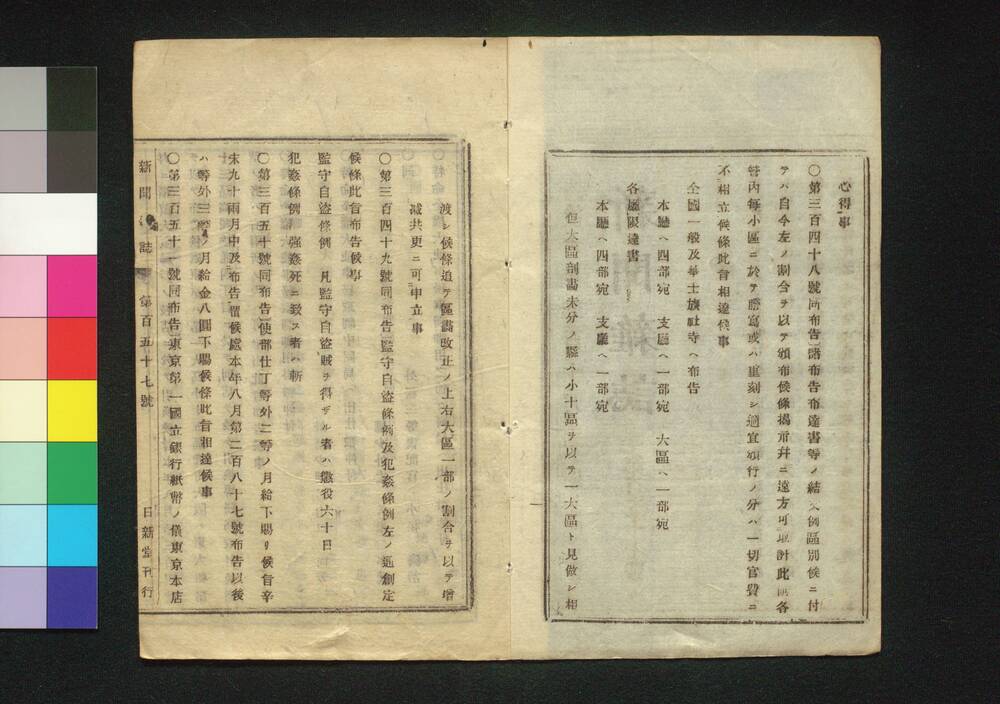 心得事
○第三百四十八號同布告諸布告布達書等ノ結入例區別候ニ付
テハ自今左ノ割合ヲ以テ頒布候條揭示幷ニ遠方可取計此段各
管内每小區ニ於テ謄寫或ハ重刻シ適宜頒行ノ分ハ一切官費ニ
不相立候條此旨相達候事
全國一般及華士族社寺ヘ布告
本廳ヘ四部宛 支廳ヘ一部宛 大區ヘ一部宛
各廳限達書
本廳ヘ四部宛 支廳ヘ一部宛
但大區剖畵未分ノ縣ハ小十區ヲ以テ一大區ト見做シ相
渡シ候條追テ區畵改正ノ上右大區一部ノ割合ヲ以テ增
减共更ニ可申立事
○第三百四十九號同布告監守自盜條例及犯姦條例左ノ通創定
候條此旨布告候事
監守自盜條例 凡監守自盜賊ヲ得ザル者ハ懲役六十日
犯姦條例 强姦死ニ致ス者ハ斬
○第三百五十號同布告使部仕丁等外二等ノ月給下賜リ候旨辛
未九十兩月中及布告置候處本年八月第二百八十七號布告以後
ハ等外三等ノ月給金八圓下賜候條此旨相達候事
○第三百五十一號同布告東京第一國立銀行紙幣ノ儀東京本店
新聞雜誌 第百五十七號 日新堂刊行